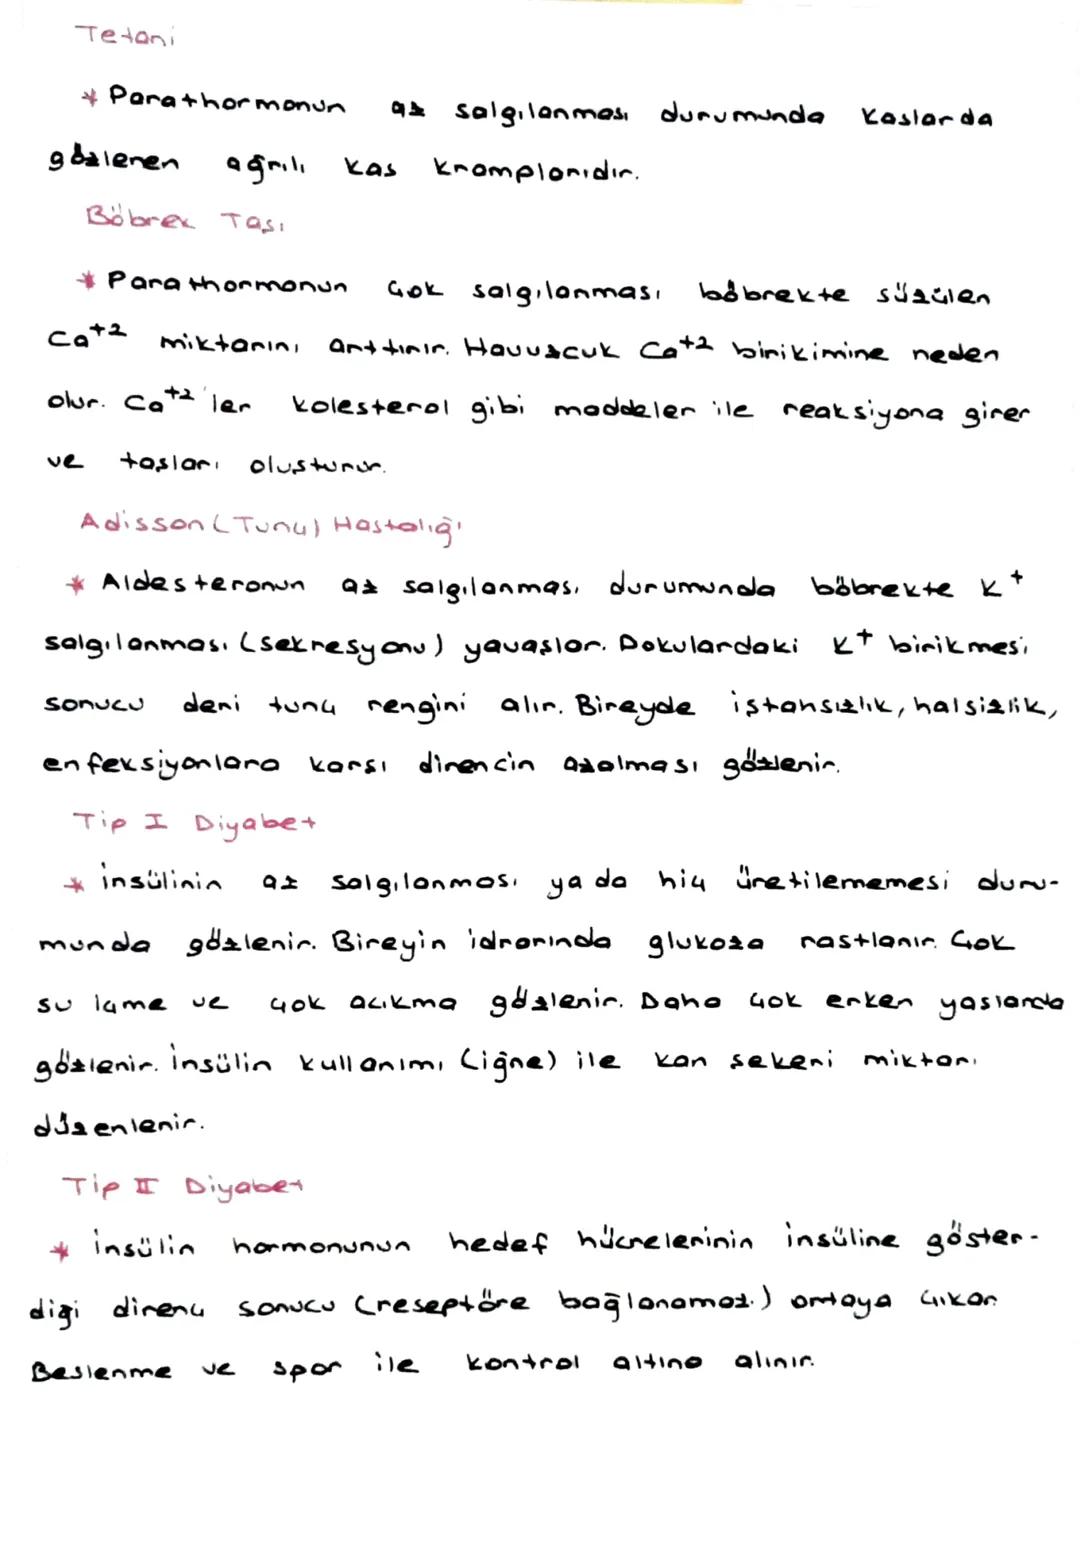 Tetani
* Parathormonun az salgılanması durumunda kaslarda
gözlenen ağrılı kas kramplarıdır.
Böbrek Taşı
* Parathormonun çok salgılanması böbrekte süzülen
Ca+2 miktarını arttırır. Havuzcuk Ca+2 birikimine neden
olur. Ca+2'ler kolesterol gibi maddeler ile reaksiyona girer
ve taşları oluşturur.
Adisson (Tunç) Hastalığı
* Aldesteronun az salgılanması durumunda böbrekte K+
salgılanması (sekresyonu) yavaşlar. Dokulardaki K+ birikmesi
sonucu deri tunç rengini alır. Bireyde iştahsızlık, halsizlik,
enfeksiyonlara karşı direncin azalması gözlenir.
Tip I Diyabet
* insülinin az salgılanması ya da hiç üretilememesi duru-
munda gözlenir. Bireyin idrarında glukoza rastlanır. Çok
su içme ve çok acıkma gözlenir. Daha çok erken yaşlarda
gözlenir. insülin kullanımı (iğne) ile kan şekeri miktarı
düzenlenir.
Tip II Diyabet
* insülin hormonunun hedef hücrelerinin insüline göster-
diği direnç sonucu (reseptöre bağlanamaz.) ortaya çıkar.
Beslenme ve spor ile kontrol altına alınır.